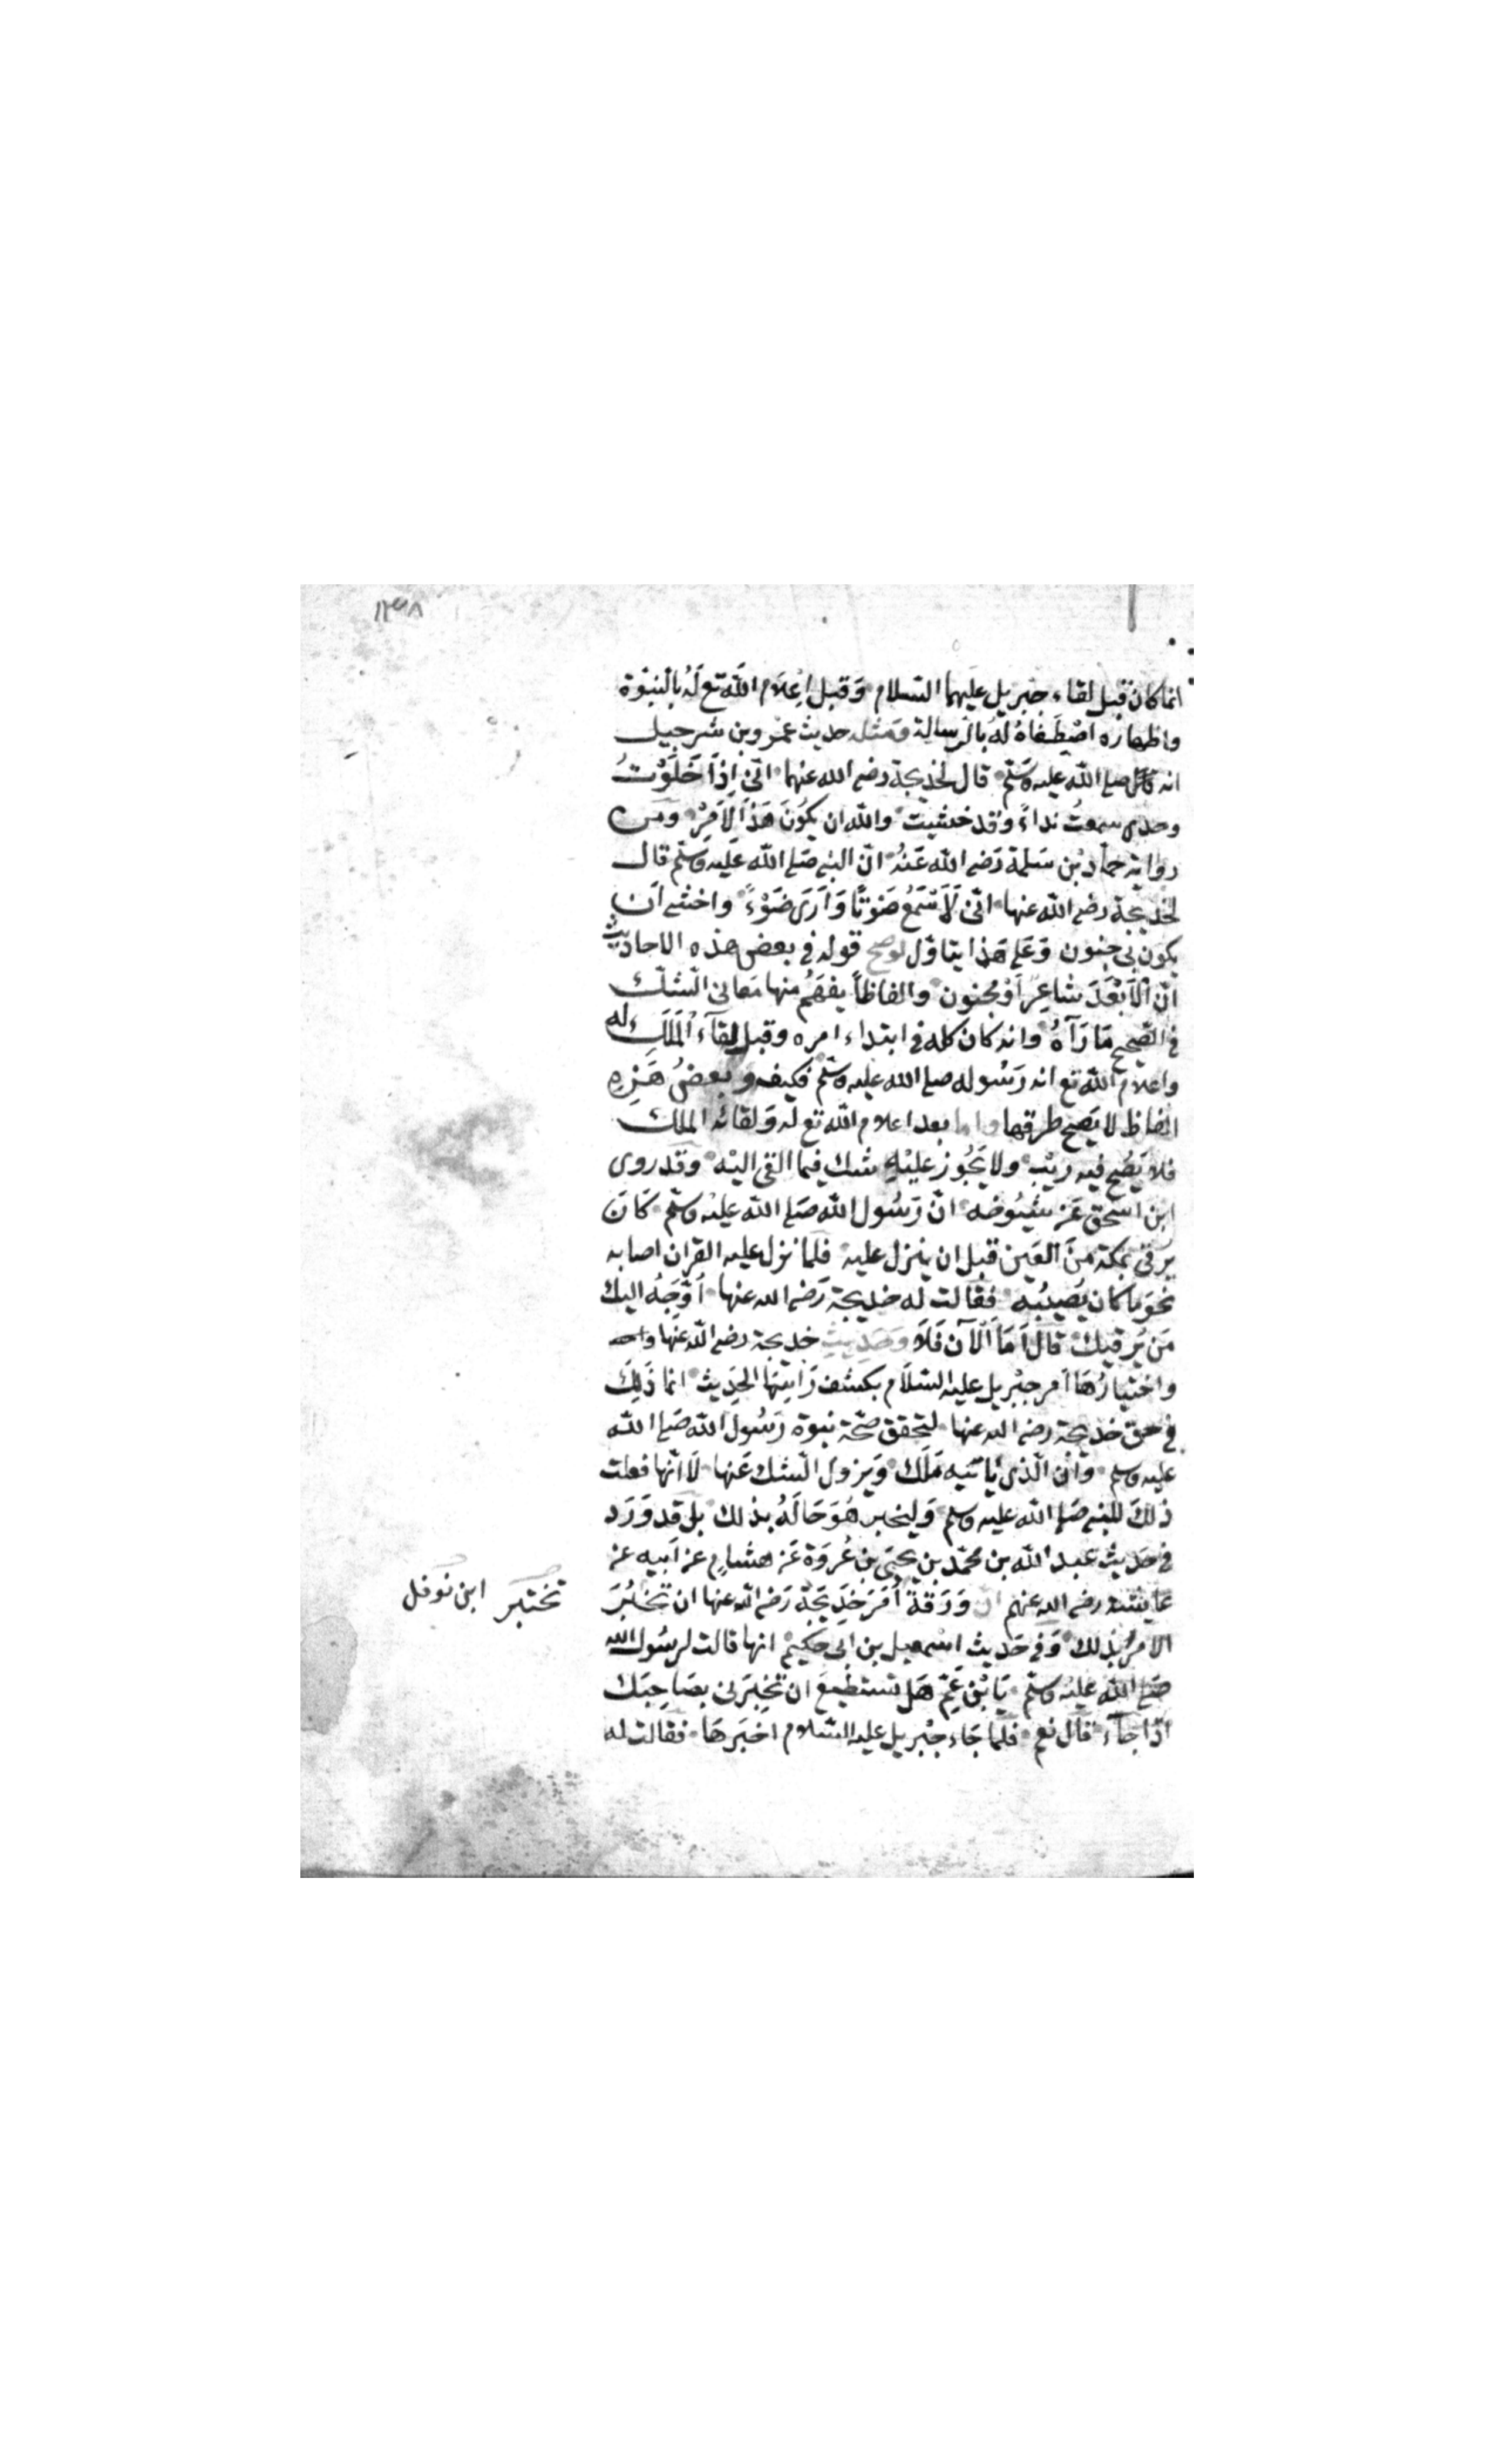 ١٣٨
انما كان قبل لقاء جبريل عليهما السلام وَقبل اِعِلَام اللّٰه تع لَهُ بالنبوّة
واظهاره اصْطَفاهُ لهُ بالرّسالة وَمثله حديث عمْروبن شرحبيل
انه صلى اللّٰه عليه وسَلّم قال لخديجة رضى اللّٰه عنهما انّى اِذَا خَلَوْتُ
وحدى سمعتُ نداءً وَقد خشيت واللّٰه ان يكُونَ هَذَا لاَمْرٍ ومن
رواية حمّاد بْن سَلمة رَضى اللّٰه عَنهُ انّ النبى صَلى اللّٰه عَليه وَسلّم قال
لخديجة رضى اللّٰه عنها انّى لَاَسْمَعُ صَوْتًا وَاَرَى ضَوْءً واخشى اَن
يكون بى جنون وَعَلى هَذا يتاوّل لوصح قوله فى بعض هذه الاحاديث
انّ الْاَبْعَدَ شاعِرٌ اَوْ مجنون والفاظاً يفهَمُ منها مَعانى الشّك
فى تصحيح مَا رَآهُ وانه كان كله فى ابتداء امره وقبل لقآء الْمَلَكِ له
واعلام اللّٰه تع انه رَسُوله صلى اللّٰه عليه وسلّم فكيف وبعضُ هَذِهِ
الفاظ لا يَصح طرقها واما بعد اعلام اللّٰه تع له وَلقائه الملك
فلا يَصُح فيه رَيْب ولا يَجُوز عليْهِ شك فيما القى اليْه وقد روى
ابن اسحق عَن شُيُوخه انّ رَسُول اللّٰه صَلى اللّٰه عليْه وسَلّم كَانَ
يرقى بمكة مِنَ العَين قبل ان ينزل عليه فلما نزل عليه القران اصابه
نحوَ ما كان يُصيبُه فقالت له خديجة رَضى الله عنها اُوَجِّهُ اليك
مَن يَرقيك قال اَمَا الآن فَلَا وَحَديثِ خديجة رضى اللّٰه عنها
واختبارُهَا اَمر جبْريل عليه السّلَام بكشف رَاسِهَا الحَدِيث انما ذَلِكَ
فى حق خديجة رضى اللّٰه عنها لتحقق صحّة نبوة رَسُول اللّٰه صَلى اللّٰه
عليه وسلم وَاَن الّذى يَاتيه مَلَك وَيزول الشّك عَنها لَا انّها فعلت
ذلكَ للنبى صَلى اللّٰه عليه وسلم وَليخبر هُوَ حَالَهُ بذلك بل قد وَرَد
فى حَديث عَبد اللّٰه بن محمّد بن يحيَى بن عُرْوَة عَن هشامٍ عن اَبيه عن
عَايشة رضى اللّٰه عنهم انّ وَرَقةَ اَمَرَ خَدِيجَة رَضى اللّٰه عنها ان تخبُرَ
تختَبَر
ابن نوفل
الامْرُ بذلك وَفى حَديث اسْمعيل بن ابى حَكيْم انها قالت لرسُول اللّٰه
صَلى اللّٰه عليْه وسَلّم يَا بْنَ عَمّ هَل تستطيعَ ان تخبرَنى بصَاحِبَك
اذا جآءَ قَال نعم فلما جَاء جبْريل عليه السّلام اخبَرهَا فقالت له